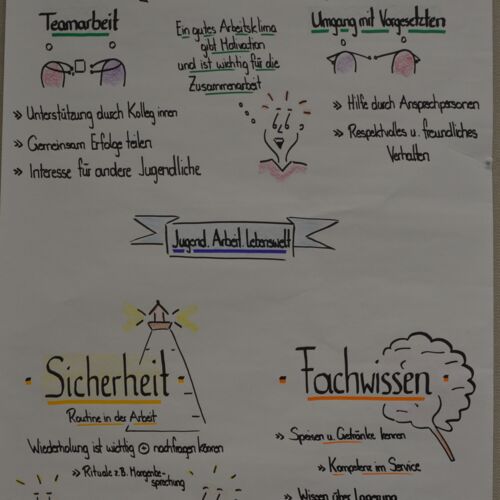 Teamarbeit
» Unterstützung durch Kolleg innen
» Gemeinsam Erfolge teilen
» Interesse für andere Jugendliche
Ein gutes Arbeitsklima
gibt Motivation
und ist wichtig für die
Zusammenarbeit
Umgang mit Vorgesetzten
» Hilfe durch Ansprechpersonen
» Respektvolles u. freundliches
Verhalten
Jugend. Arbeit. Lebenswelt
- Sicherheit -
Routine in der Arbeit
Wiederholung ist wichtig + nachfragen können
» Rituale z.B. Morgenbe-
sprechung
- Fachwissen -
» Speisen u. Getränke kennen
» Kompetenz im Service
» Wissen über Lagerung